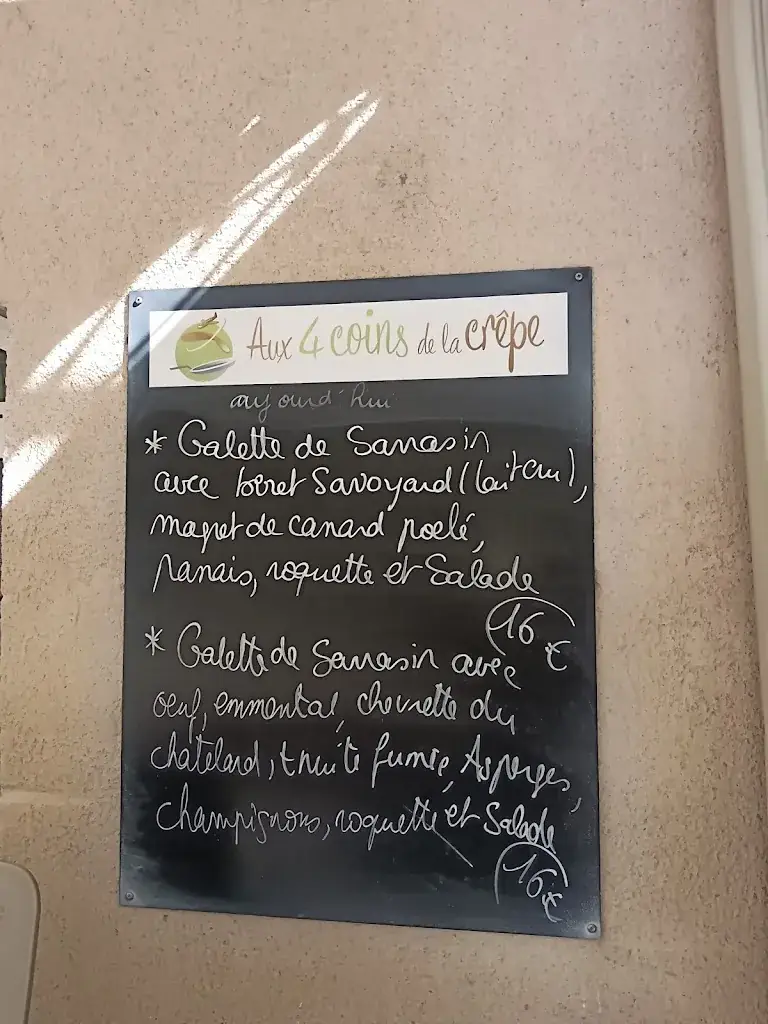 Aux 4 coins de la crêpe
aujourd'hui
* Galette de Sarrasin
avec beret Savoyard (lait cru),
magret de canard poelé,
panais, roquette et Salade
16 €
* Galette de Sarrasin avec
oeuf, emmental, chevrette du
chatelard, truite fumée, Asperges,
champignons, roquette et Salade
16€